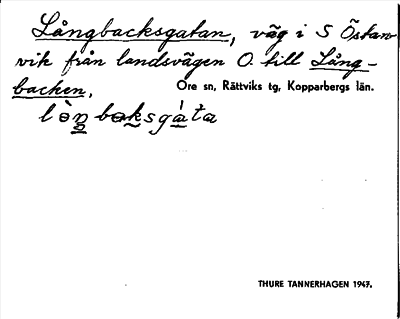 Långbacksgatan, väg i S Östan-
vik från landsvägen O. till Lång-
backen. Ore sn, Rättviks tg, Kopparbergs län.
THURE TANNERHAGEN 1947.